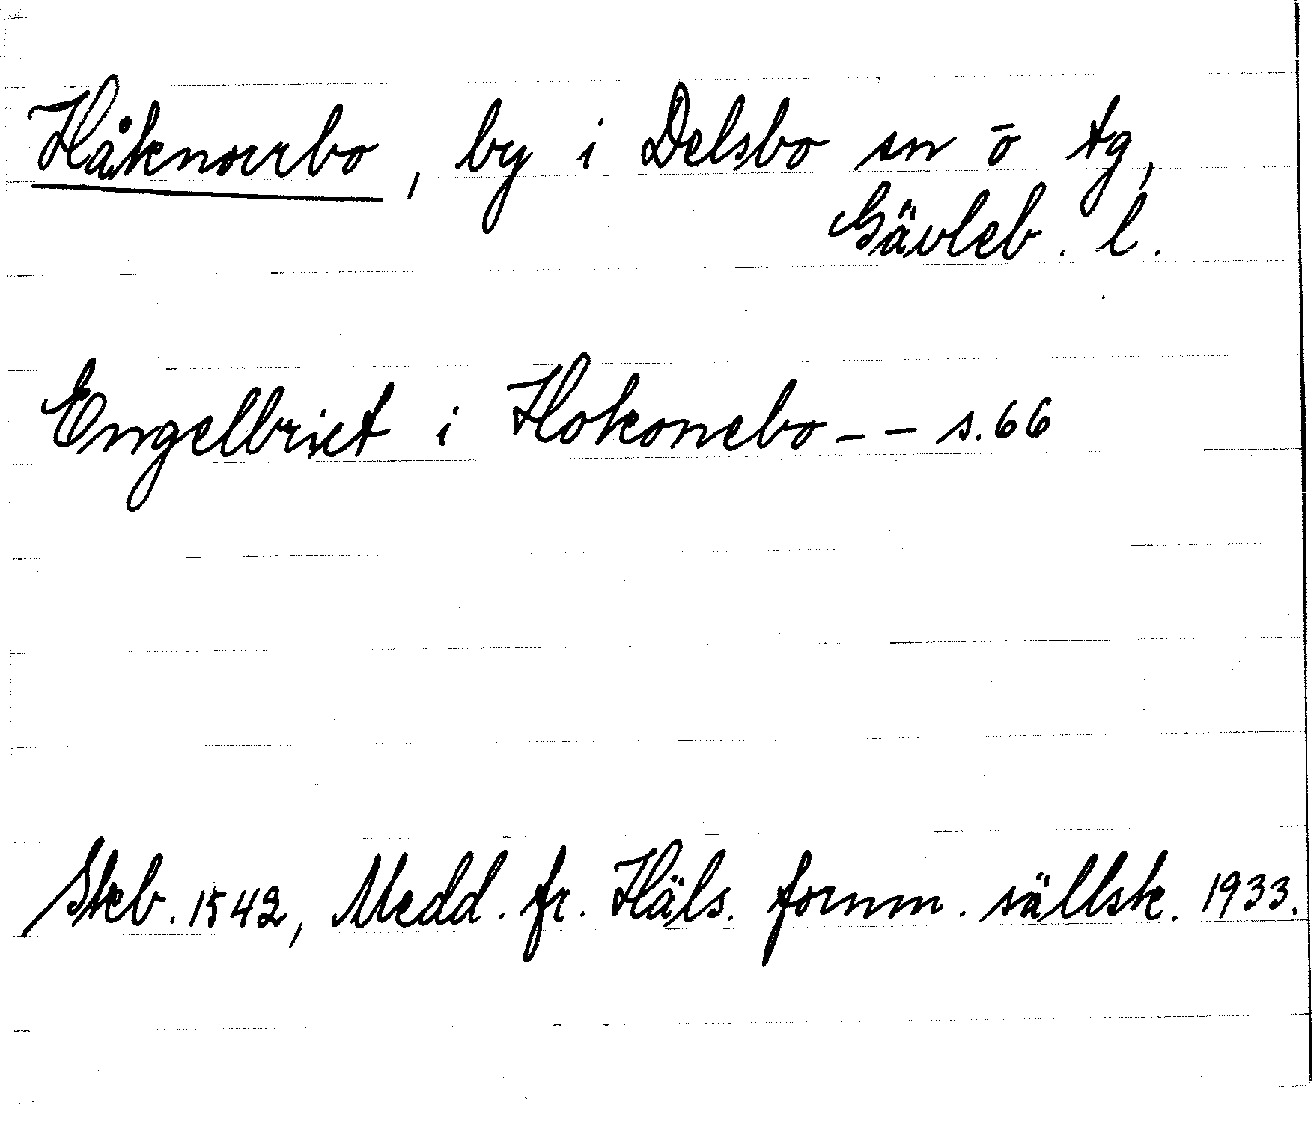 Håknorrbo, by i Delsbo sn o tg,
Gävleb. l.
Engelbrict i Hokonebo - - s. 66
Skb. 1542, Medd. fr. Häls. fornm. sällsk. 1933.